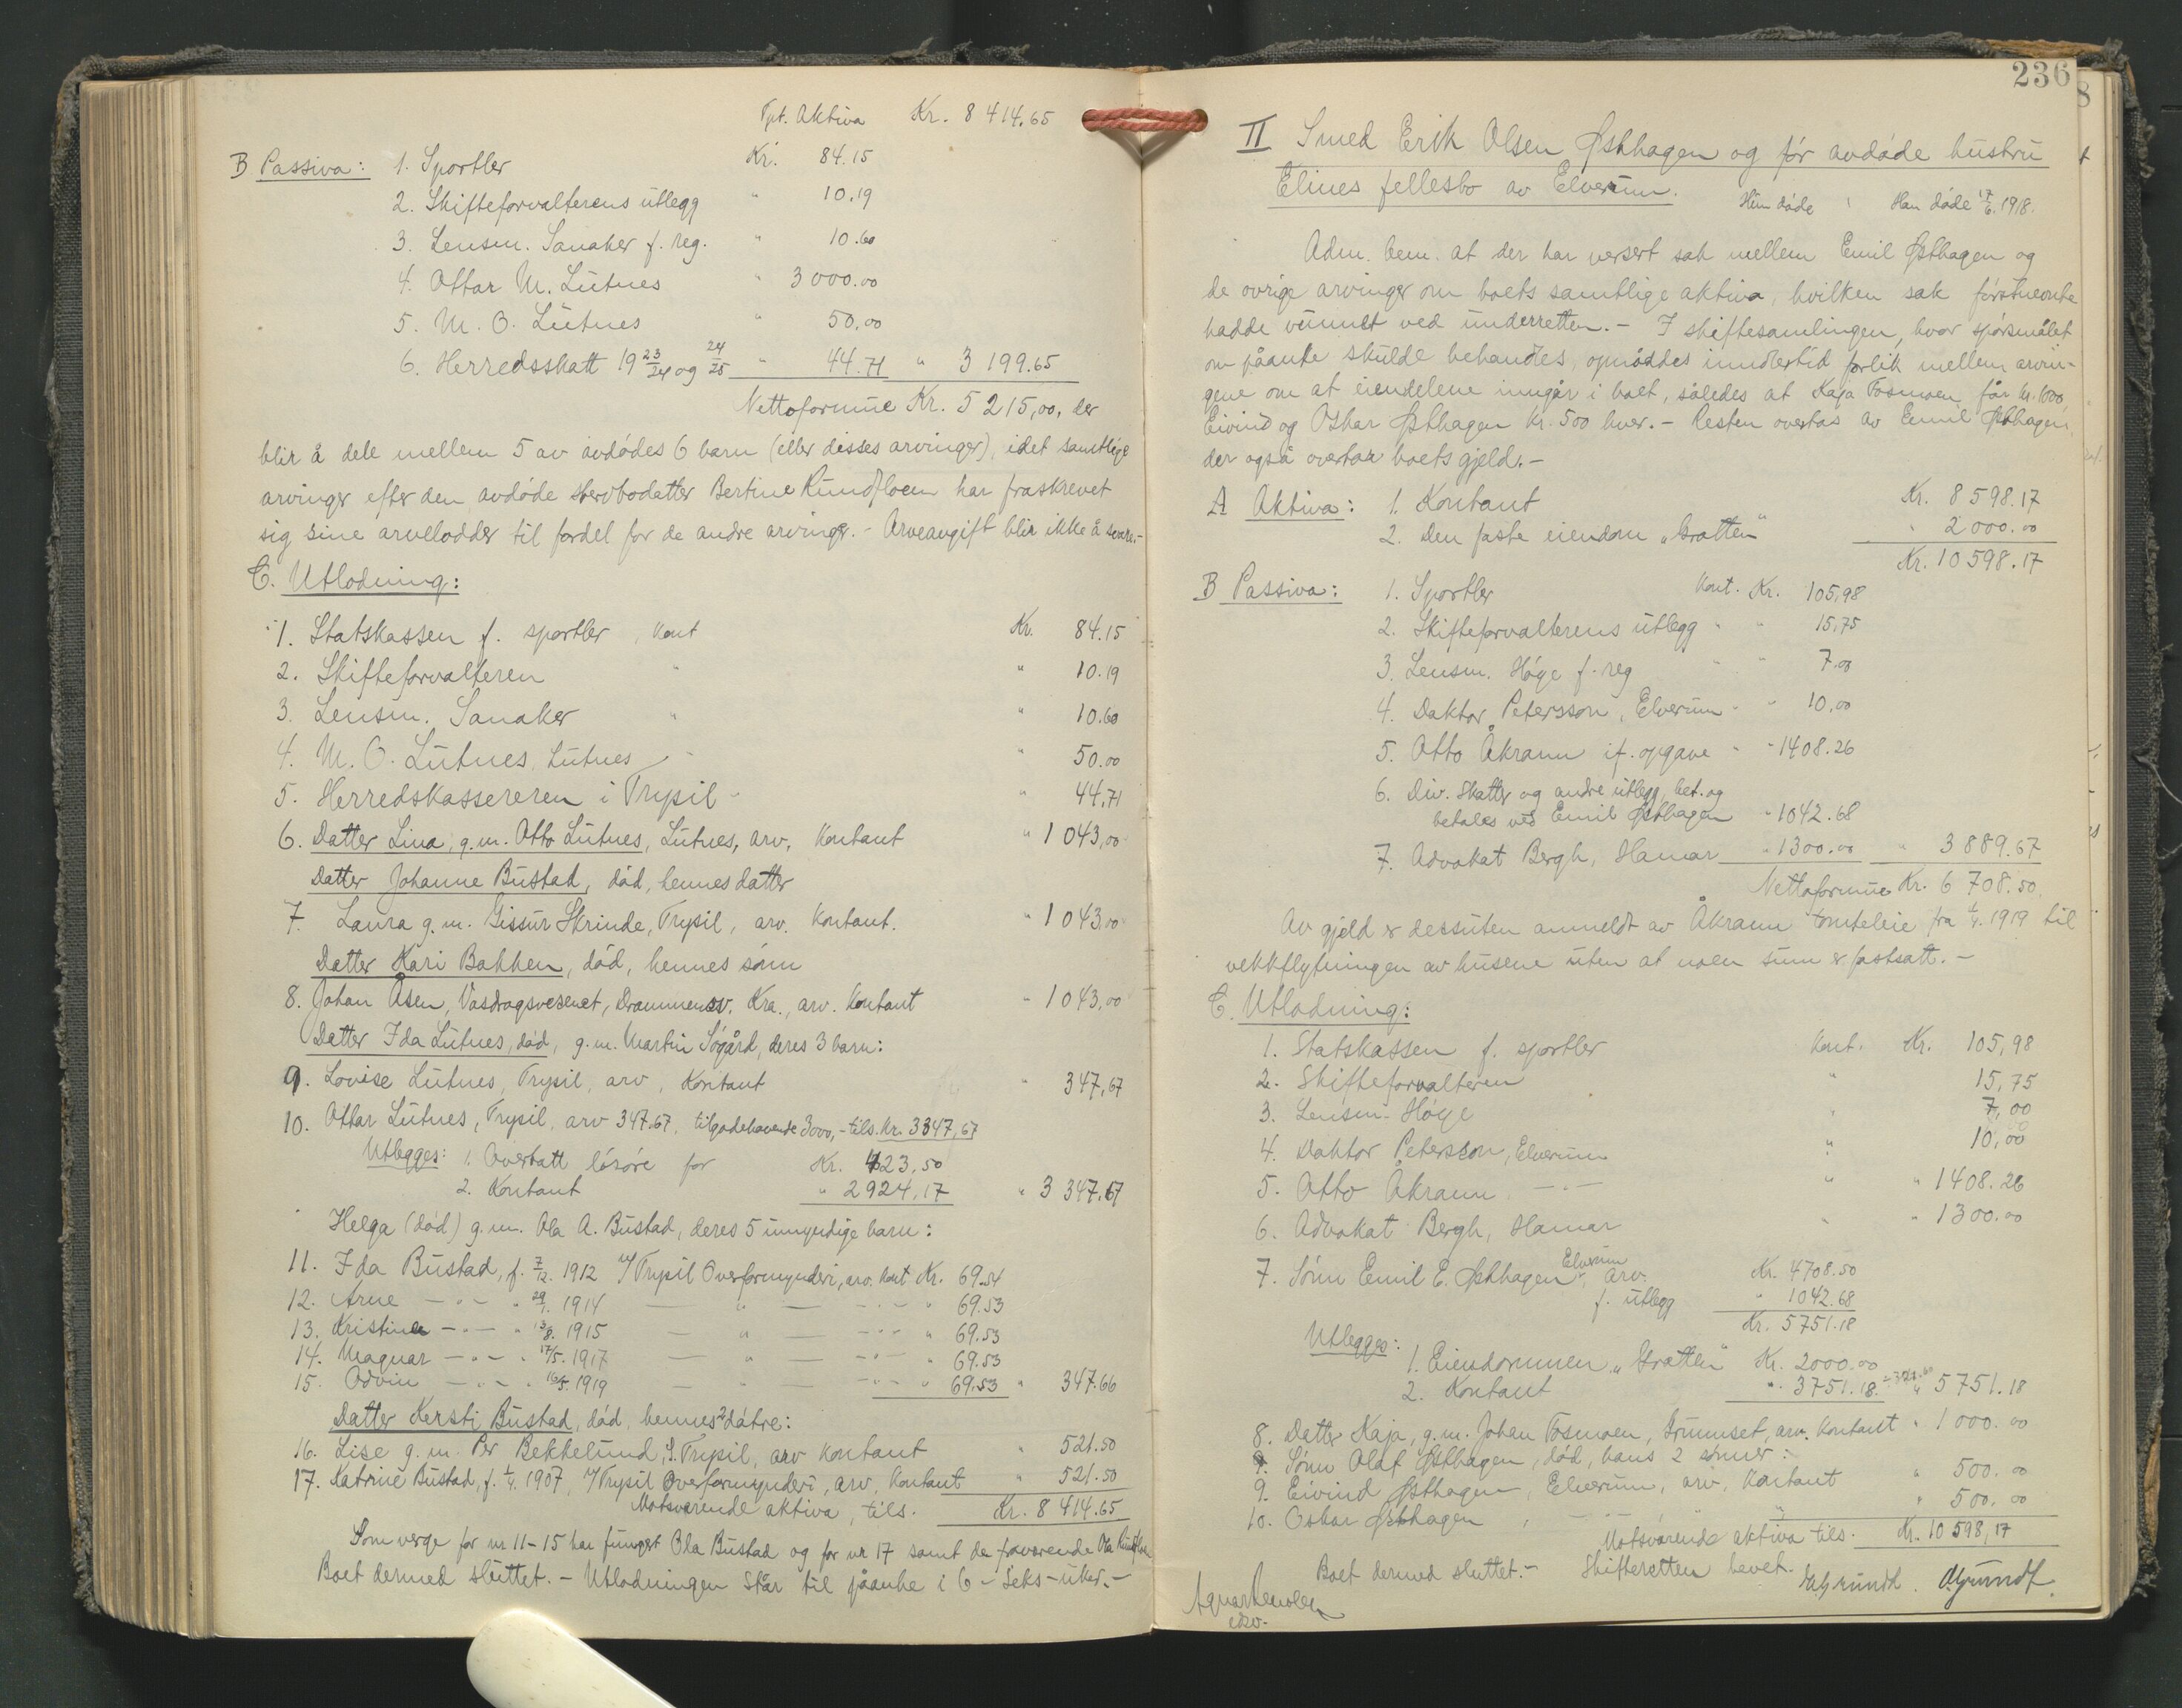 Tpt. Aktiva Kr. 8 414.65
B Passiva: 1. Sportler Kr. 84.15
2. Skifteforvalterens utlegg " 10.19
3. Lensm. Sanaker f. reg. " 10.60
4. Ottar M. Lutnes " 3 000.00
5. M. O. Lutnes " 50.00
6. Herredsskatt 19 23/24 og 24/25 " 44.71 " 3 199.65
Nettoformue Kr. 5 215,00, der
blir å dele mellem 5 av avdødes 6 barn (eller disses arvinger), idet samtlige
arvinger efter den avdøde Bertine Rundfloen har fraskrevet
sig sine arvelodder til fordel for de andre arvinger. - Arveavgift blir ikke å svare.-
C. Utlodning:
1. Statskassen f. sportler, kont Kr. 84.15
2. Skifteforvalteren " " 10.19
3. Lensm. Sanaker " " 10.60
4. M. O. Lutnes, Lutnes " " 50.00
5. Herredskassereren i Trysil " " 44,71
6. Datter Lina, g.m. Otto Lutnes, Lutnes, arv, kontant " 1 043,00
Datter Johanne Bustad, død, hennes datter
7. Laura g.m. Gissur Skrinde, Trysil, arv. kontant. " 1 043.00
Datter Kari Bakken, død, hennes sønn
8. Johan Åsen, Vasdragsvesenet, Drammensv. Kra., arv. kontant " 1 043,00
Datter Ida Lutnes, død, g.m. Martin Søgård, deres 3 barn:
9. Lovise Lutnes, Trysil, arv, kontant " 347,67
10. Ottar Lutnes, Trysil, arv 347.67, tilgodehavende 3000,- tils. kr. 3347,67
Utlegges: 1. Overtatt løsøre for Kr. 423,50
2. Kontant " 2924,17 " 3 347.67
Helga (død) g.m. Ola A. Bustad, deres 5 umyndige barn:
11. Ida Bustad, f. 7/12. 1912 v/ Trysil Overformynderi, arv. kont Kr. 69.54
12. Arne — " — " 29/1. 1914 — " — — " — " 69.53
13. Kristine — " — " 13/8. 1915 — " — — " — " 69.53
14. Magnar — " — " 17/5. 1917 — " — — " — " 69.53
15. Odvin — " — " 16/5. 1919 — " — — " — " 69.53 " 347.66
Datter Kersti Bustad, død, hennes 2 døtre:
16. Lise g.m. Per Bekkelund, S. Trysil, arv kontant " 521.50
17. Katrine Bustad, f. 1/4. 1907, v/ Trysil Overformynderi, arv, kontant " 521.50
Motsvarende aktiva, tils. Kr. 8 414.65
Som verge for nr 11-15 har fungert Ola Bustad og for nr 17 samt de fraværende
Boet dermed sluttet. - Utlodningen står til påanke i 6 - seks - uker.-
236
II Smed Erik Olsen Østhagen og før avdøde hustru
Elines fellesbo av Elverum.
Hun døde Han døde 17/6. 1918.
Adm. bem. at der har versert sak mellem Emil Østhagen og
de øvrige arvinger om boets samtlige aktiva, hvilken sak førstnevnte
hadde vunnet ved underretten. - I skiftesamlingen, hvor spørsmålet
om påanke skulde behandles, opnåddes imidlertid forlik mellem arvin-
gene om at eiendelene inngår i boet, således at Kaja Fosmoen får kr. 1000,
Eivind og Oskar Østhagen kr. 500 hver. - Resten overtas av Emil Østhagen,
der også overtar boets gjeld.-
A Aktiva: 1. Kontant Kr. 8 598.17
2. Den faste eiendom „Bratten" " 2 000.00
Kr. 10 598.17
B Passiva: 1. Sportler kont. Kr. 105,98
2. Skifteforvalterens utlegg " " 15,75
3. Lensm. Høge f. reg " " 7.00
4. Doktor Petersson, Elverum " " 10,00
5. Otto Åkrann if. opgave " " 1408.26
6. Div. skatter og andre utlegg, bet. og
betales ved Emil Østhagen " 1042.68
7. Advokat Bergh, Hamar " 1300.00 " 3 889.67
Nettoformue Kr. 6 708.50.
Av gjeld er dessuten anmeldt av Åkrann tomteleie fra 1/4. 1919 til
vekkflytningen av husene uten at noen sum er fastsatt. -
C. Utlodning:
1. Statskassen f. sportler kont. Kr. 105,98
2. Skifteforvalteren " 15,75
3. Lensm. Høge " 7,00
4. Doktor Petersson, Elverum " 10,00
5. Otto Åkrann, — " — " " 1408.26
6. Advokat Bergh, Hamar " " 1300.00
7. Sønn Emil E. Østhagen, Elverum, arv. Kr. 4708.50
f. utlegg " 1042.68
Kr. 5751.18
Utlegges: 1. Eiendommen „Bratten" Kr. 2000.00
2. Kontant " 3751.18 " 5751.18
8. Datter Kaja, g.m. Johan Fosmoen, Grumset, arv. kontant " 1 000.00
Sønn Olaf Østhagen, død, hans 2 sønner:
9. Eivind Østhagen, Elverum, arv, kontant " 500.00
10. Oskar Østhagen, — " — " " 500.00
Motsvarende aktiva tils. Kr. 10 598,17
Boet dermed sluttet.- Skifteretten hevet.